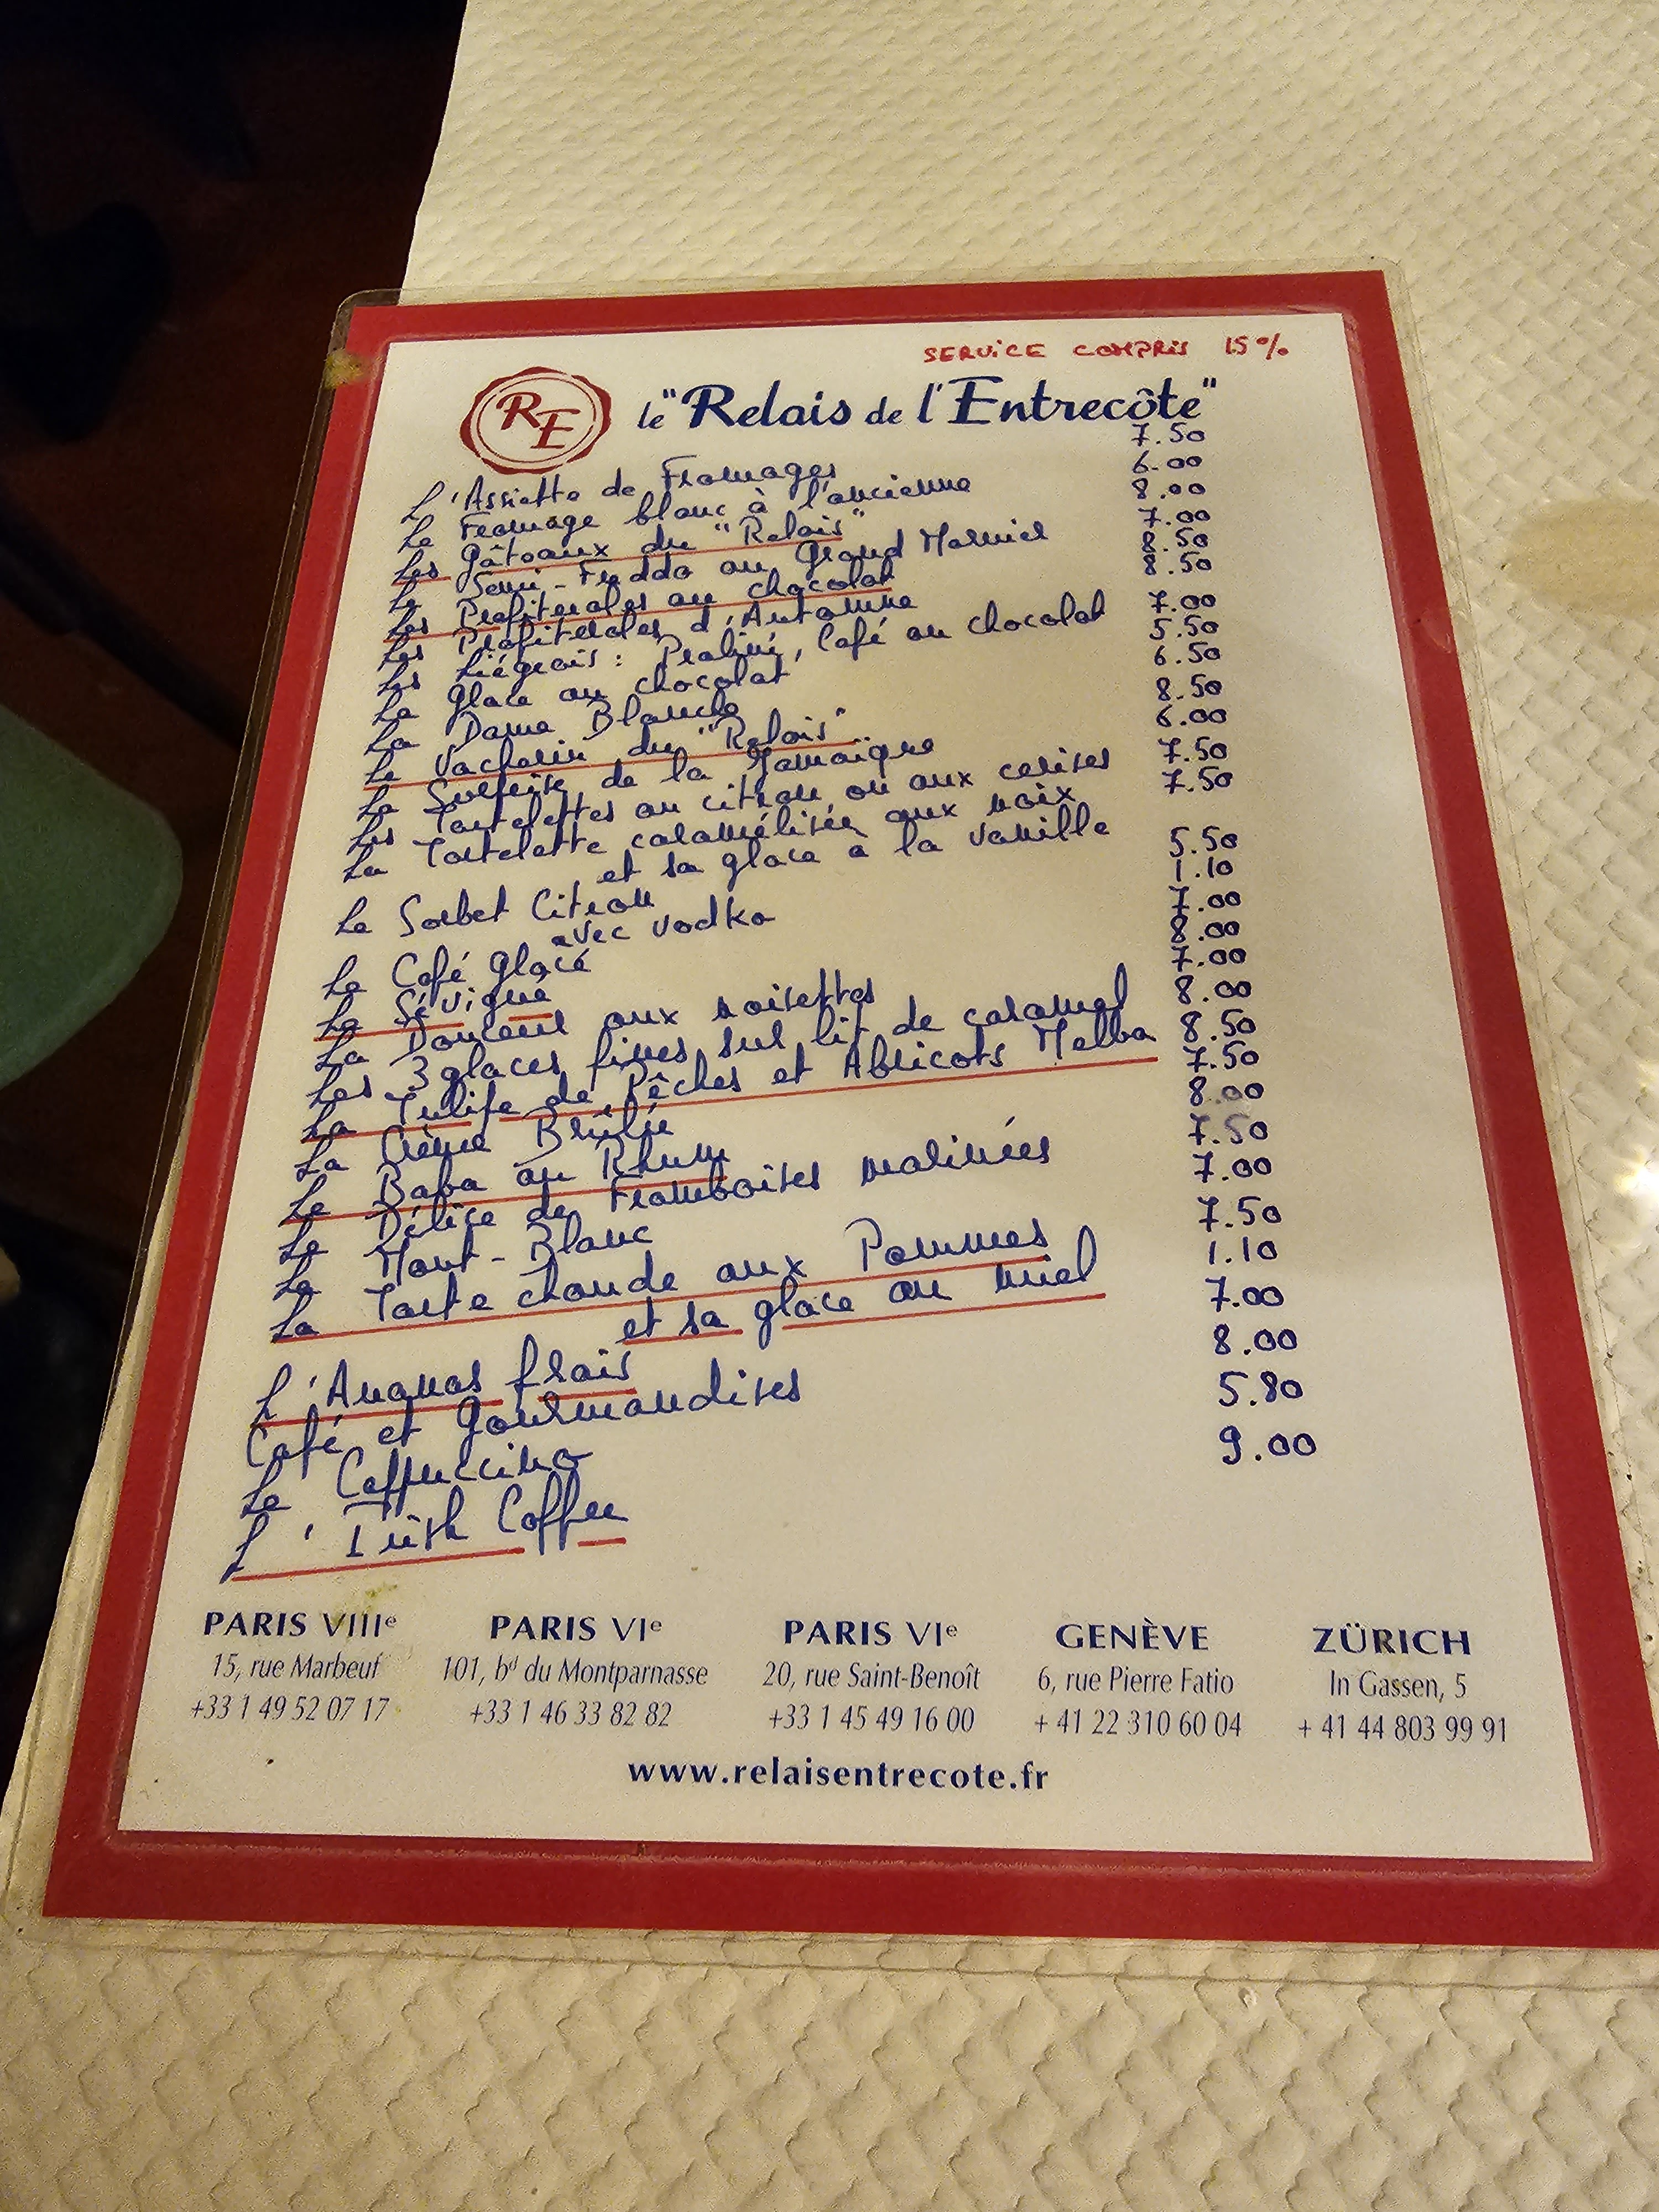 SERVICE COMPRIS 15%
RE le "Relais de l'Entrecôte"
L'Assiette de Fromages 7.50
Le Fromage blanc à l'ancienne 6.00
Les Gâteaux du "Relais" 8.00
Le Semi-Freddo au Grand Marnier 7.00
Les Profiteroles au chocolat 8.50
Les Profiteroles d'Automne 8.50
Les Liégeois : Praliné, Café ou chocolat 7.00
La Glace au chocolat 5.50
La Dame Blanche 6.50
Le Vacherin du "Relais" 8.50
La Surprise de la Jamaïque 6.00
Les Tartelettes au citron ou aux cerises 7.50
La Tartelette caramélisée aux noix 7.50
et sa glace à la vanille
Le Sorbet Citron 5.50
avec vodka 1.10
Le Café Glacé 7.00
Le Sévigné 8.00
La Douceur aux noisettes 7.00
Les 3 glaces fines sur lit de caramel 8.00
La Tulipe de Pêches et Abricots Melba 8.50
La Crème Brûlée 7.50
Le Baba au Rhum 8.00
Le Délice de Framboises marinées 7.50
Le Mont-Blanc 7.00
La Tarte chaude aux Pommes 7.50
et sa glace au miel 1.10
L'Ananas frais 7.00
Café et Gourmandises 8.00
Le Cappuccino 5.80
L'Irish Coffee 9.00
PARIS VIIIe PARIS VIe PARIS VIe GENÈVE ZÜRICH
15, rue Marbeuf 101, bd du Montparnasse 20, rue Saint-Benoît 6, rue Pierre Fatio In Gassen, 5
+33 1 49 52 07 17 +33 1 46 33 82 82 +33 1 45 49 16 00 + 41 22 310 60 04 + 41 44 803 99 91
www.relaisentrecote.fr